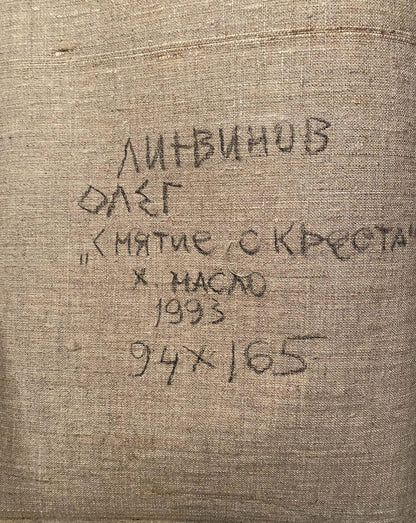 ЛИТВИНОВ
ОЛЕГ
„СНЯТИЕ С КРЕСТА"
Х. МАСЛО
1993
94х165